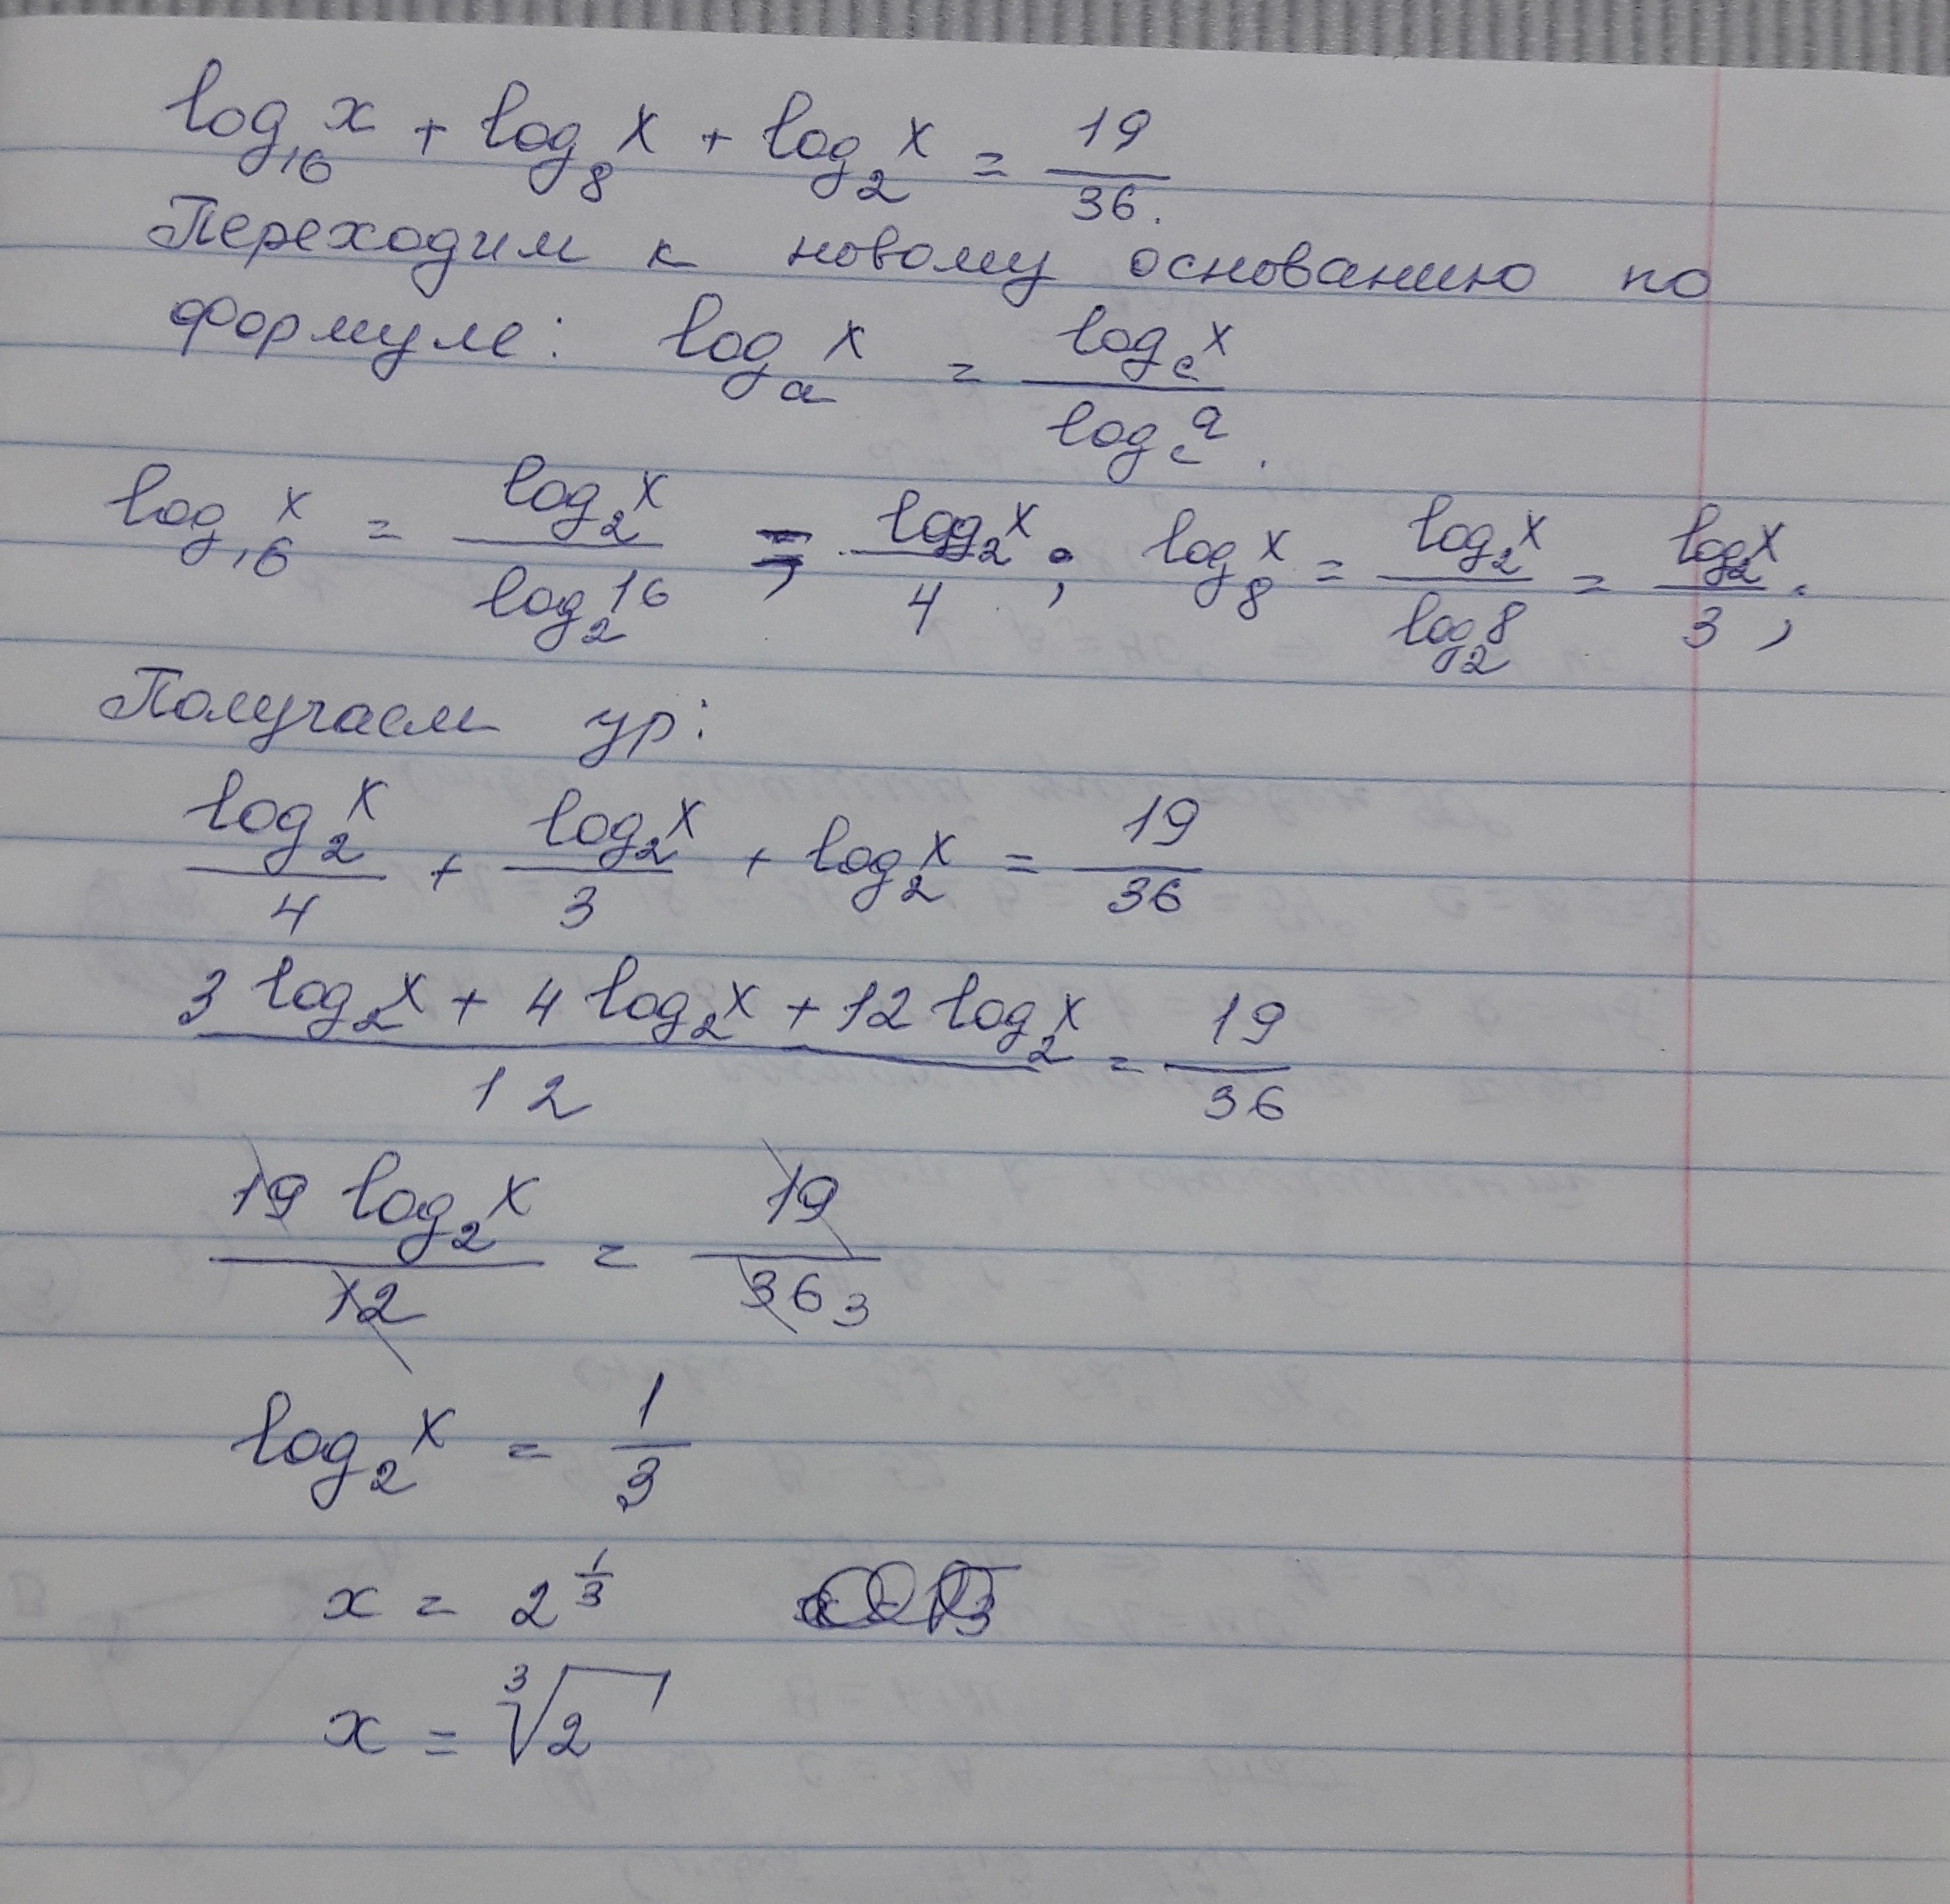 log₁₆x + log₈x + log₂x = 19/36.
Переходим к новому основанию по
формуле: logₐx = log_c x / log_c a.
log₁₆x = log₂x / log₂16 = log₂x / 4; log₈x = log₂x / log₂8 = log₂x / 3;
Получаем ур:
log₂x / 4 + log₂x / 3 + log₂x = 19/36
(3 log₂x + 4 log₂x + 12 log₂x) / 12 = 19/36
19 log₂x / 12 = 19 / 36 3
log₂x = 1/3
x = 2^(1/3)
x = ³√2